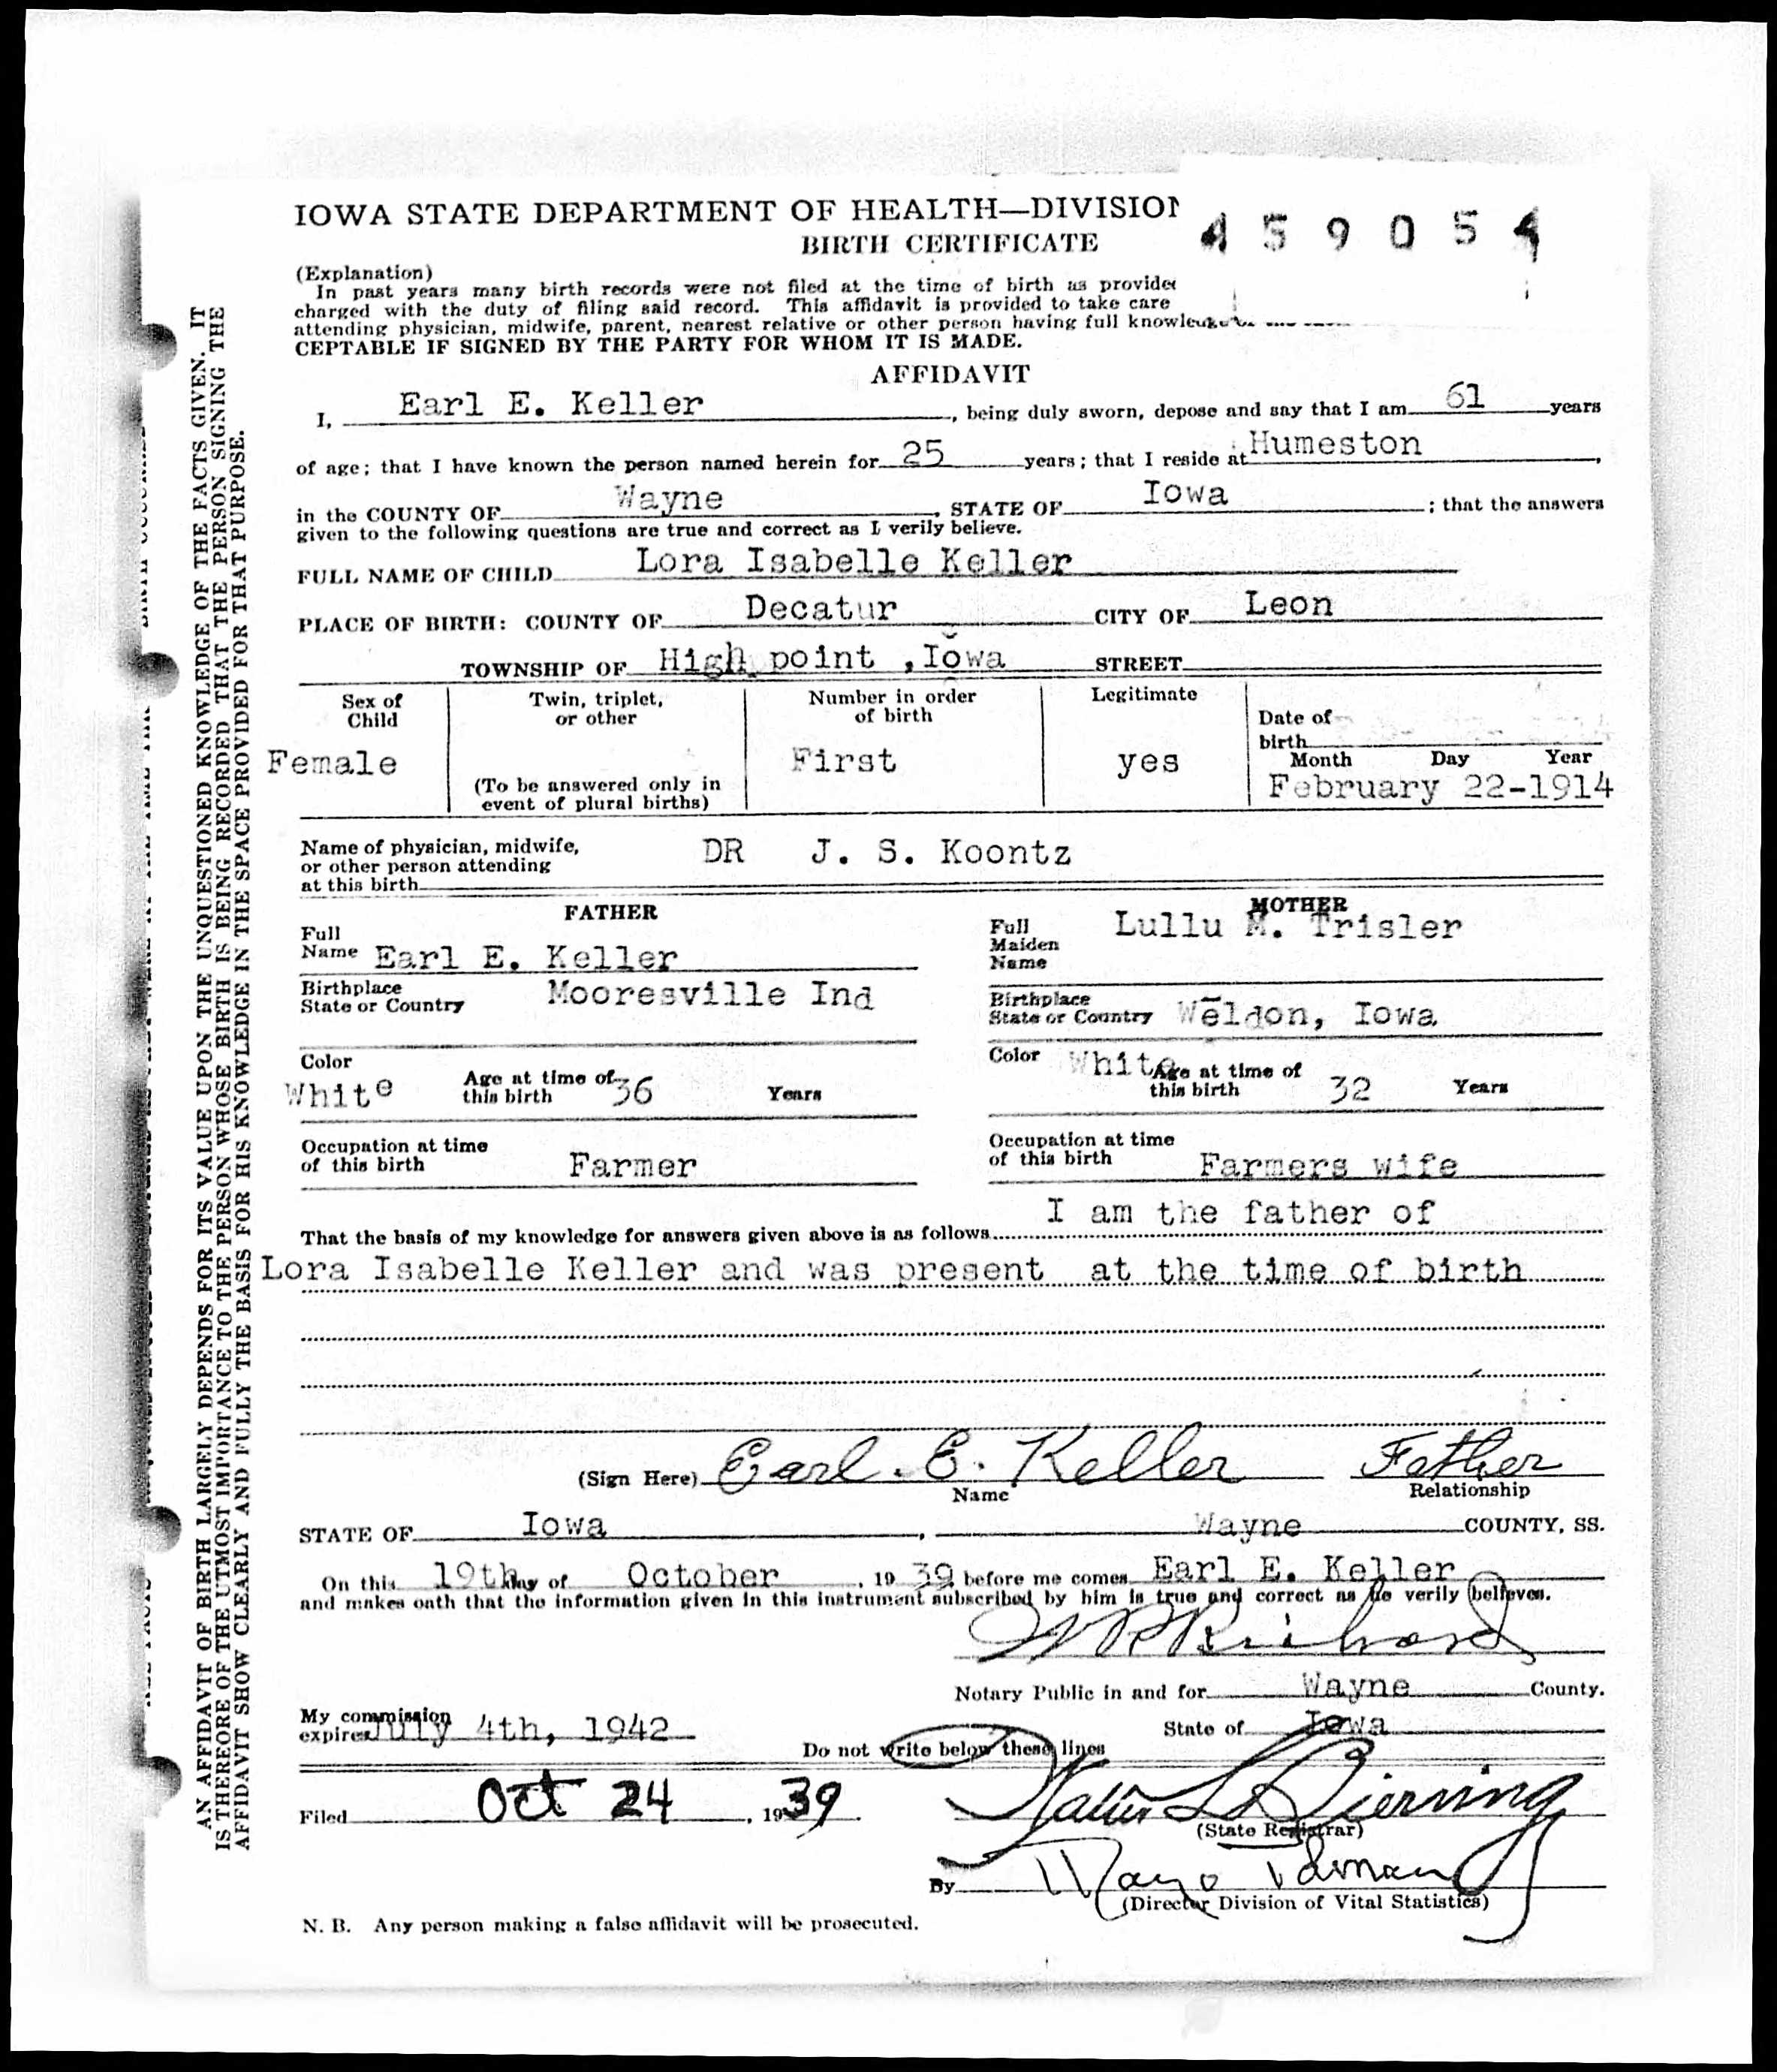 IOWA STATE DEPARTMENT OF HEALTH—DIVISION
459054
BIRTH CERTIFICATE
(Explanation)
In past years many birth records were not filed at the time of birth as provided
charged with the duty of filing said record. This affidavit is provided to take care
attending physician, midwife, parent, nearest relative or other person having full knowledge
CEPTABLE IF SIGNED BY THE PARTY FOR WHOM IT IS MADE.
AFFIDAVIT
I, Earl E. Keller, being duly sworn, depose and say that I am 61 years
of age; that I have known the person named herein for 25 years; that I reside at Humeston,
in the COUNTY OF Wayne, STATE OF Iowa; that the answers
given to the following questions are true and correct as I verily believe.
FULL NAME OF CHILD Lora Isabelle Keller
PLACE OF BIRTH: COUNTY OF Decatur CITY OF Leon
TOWNSHIP OF High point ,Iowa STREET
Sex of Child
Female
Twin, triplet, or other
(To be answered only in event of plural births)
Number in order of birth
First
Legitimate
yes
Date of birth
Month Day Year
February 22-1914
Name of physician, midwife,
or other person attending
at this birth DR J. S. Koontz
FATHER
Full
Name Earl E. Keller
Birthplace
State or Country Mooresville Ind
Color
White
Age at time of
this birth 36 Years
Occupation at time
of this birth Farmer
MOTHER
Full
Maiden
Name Lullu M. Trisler
Birthplace
State or Country Weldon, Iowa
Color White
Age at time of
this birth 32 Years
Occupation at time
of this birth Farmers wife
That the basis of my knowledge for answers given above is as follows I am the father of
Lora Isabelle Keller and was present at the time of birth
(Sign Here) Earl. E. Keller Father
Name Relationship
STATE OF Iowa, Wayne COUNTY, SS.
On this 19th day of October, 19 39 before me comes Earl E. Keller
and makes oath that the information given in this instrument subscribed by him is true and correct as he verily believes.
Notary Public in and for Wayne County.
My commission
expires July 4th, 1942
State of Iowa
Do not write below these lines
Filed Oct 24, 1939
Walter L Bierring
(State Registrar)
By
(Director Division of Vital Statistics)
N. B. Any person making a false affidavit will be prosecuted.
AN AFFIDAVIT OF BIRTH LARGELY DEPENDS FOR ITS VALUE UPON THE UNQUESTIONED KNOWLEDGE OF THE FACTS GIVEN. IT
IS THEREFORE OF THE UTMOST IMPORTANCE TO THE PERSON WHOSE BIRTH IS BEING RECORDED THAT THE PERSON SIGNING THE
AFFIDAVIT SHOW CLEARLY AND FULLY THE BASIS FOR HIS KNOWLEDGE IN THE SPACE PROVIDED FOR THAT PURPOSE.